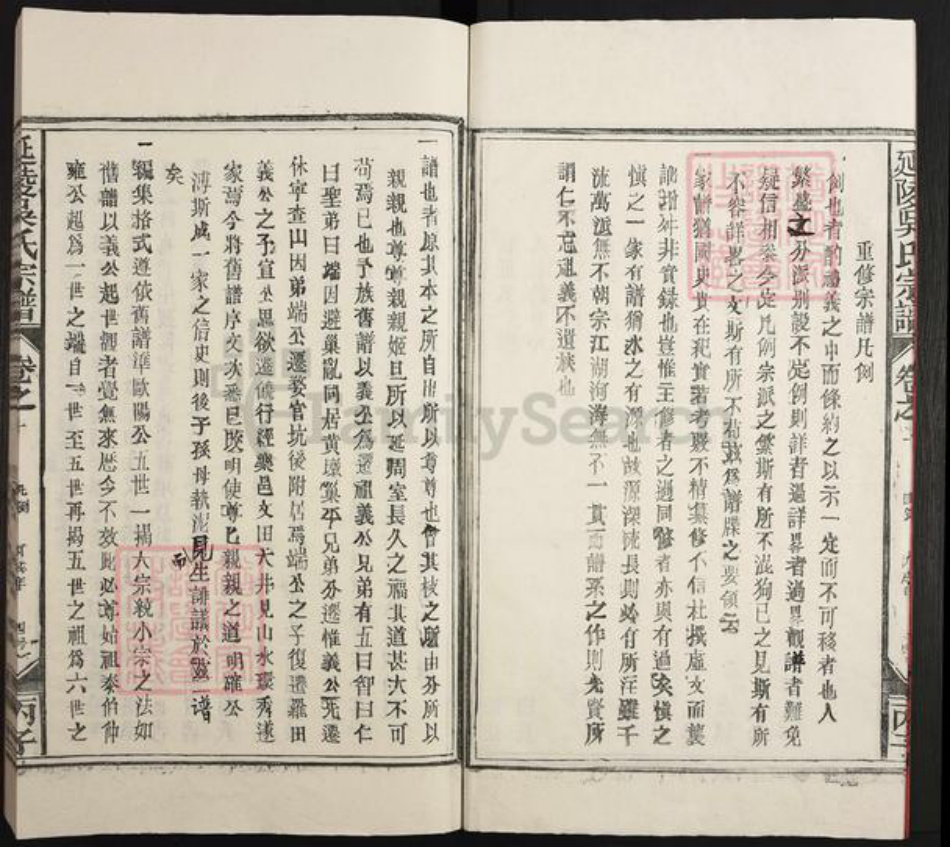 延陵吳氏宗譜
卷之一
重修宗譜凡例
例也者酌禮義之中而條約之以示一定而不可移者也人
繁墓之分派別設不定例則詳者過詳畧者過畧觀譜者難免
疑信相參今定凡例宗派之繁斯有所不混狗已之見斯有所
不容詳畧之文斯有所不苟茲為譜牒之要領云
一家譜猶國史貴在祀實若考覈不精纂修不信杜撰虛文而襲
訛踏舛非實錄也豈惟主修者之過同修者亦與有過矣慎之
慎之一家有譜猶水之有源也故源深流長則必有所注雖千
流萬派無不朝宗江湖河海無不一貫而譜系之作則先賢所
謂仁不忘祖義不遺族也
一譜也者原其本之所自出所以尊尊也會其枝之所由分所以
親親也尊尊親親姬旦所以延周室長久之福其道甚大不可
苟焉已也予族舊譜以義公為遷祖義公兄弟有五曰智曰仁
曰聖弟曰端因避巢亂同居黃墩巢平兄弟分遷惟義公先遷
休寧查山因弟端公遷婺官坑後附居焉端公之子復遷羅田
義公之子宣公思欲遷俄行經樂邑文田大井見山水環秀遂
家焉今將舊譜序文次悉已既明使尊尊親親之道明確公
溥斯成一家之信史則後子孫毋執泥見而生誹議於茲譜
矣
一編集格式遵依舊譜準歐陽公五世一揭大宗統小宗之法如
舊譜以義公起世觀者覺無來歷今不效此必尊始祖泰伯仲
雍公起為一世之端自一世至五世再揭五世之祖為六世之
延陵吳氏宗譜
卷之一
凡例
丙子
FamilySearch